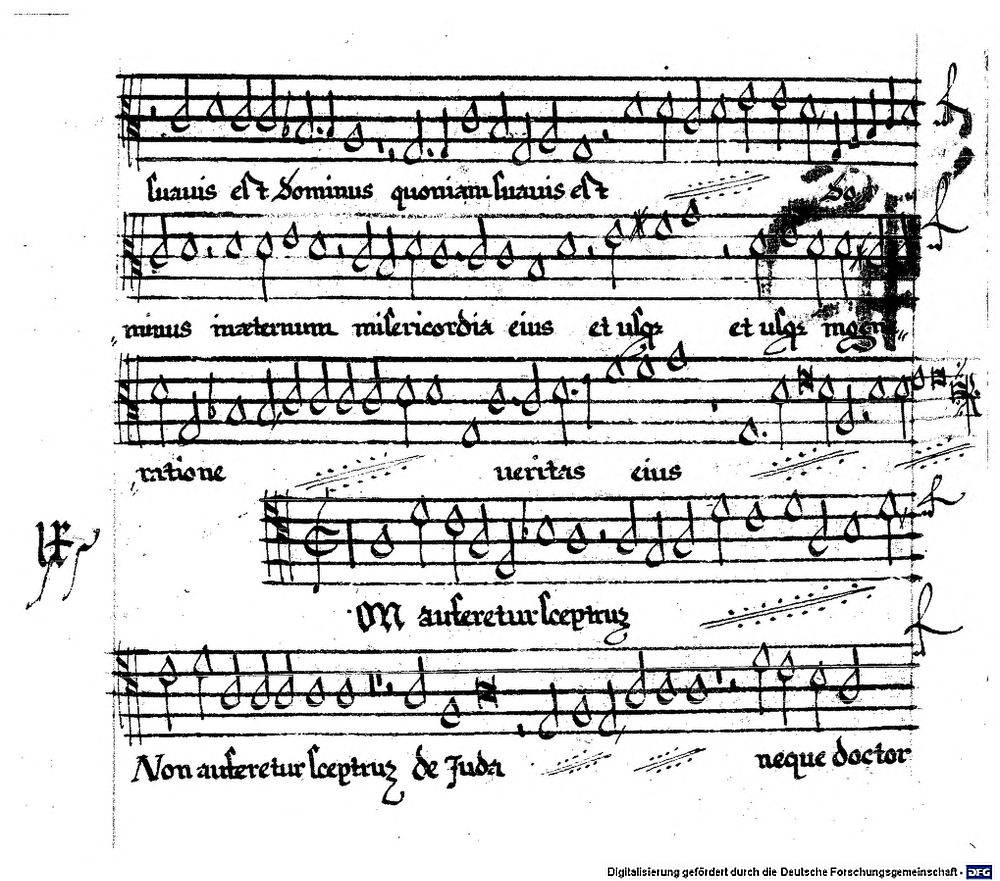 suauis est Dominus quoniam suauis est Do
minus inæternum misericordia eius et usqꝫ et usqꝫ
ratione ueritas eius
lx
Non auferetur sceptruꝫ
Non auferetur sceptruꝫ de Juda neque doctor
Digitalisierung gefördert durch die Deutsche Forschungsgemeinschaft - DFG